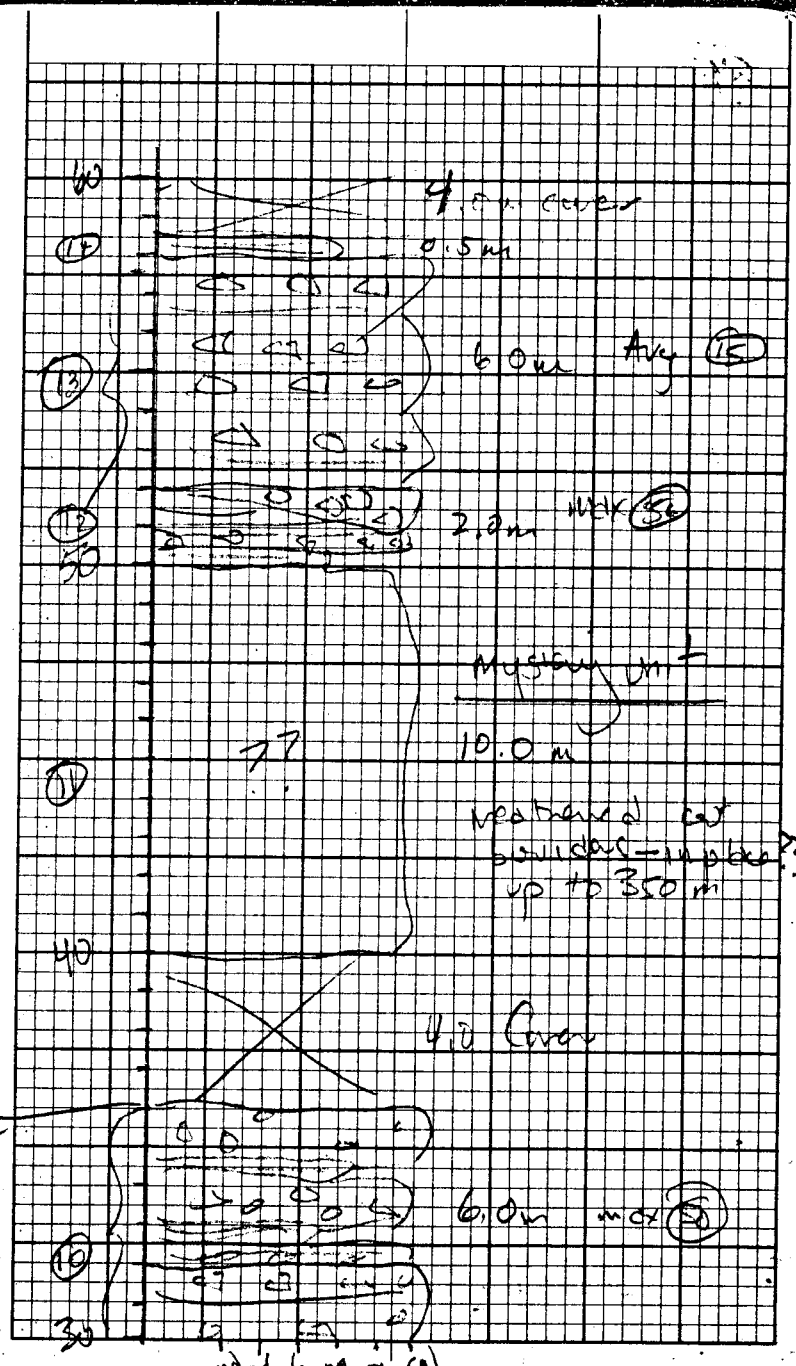 60
4.0m cover
14
0.5m
13
6.0m Avg 15
12
2.0m max
50
Mystery unit
??
10.0 m
11
weathered out
boulders - in place
up to 350 m
40
4.0 Cover
6.0m max 50
10
30